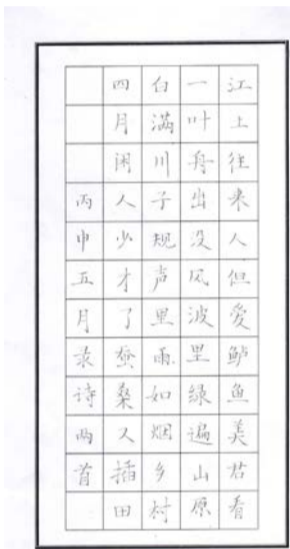 江上往来人但愛鲈鱼美君看
一叶舟出没风波里绿遍山原
白满川子规声里雨如烟乡村
四月闲人少才了蚕桑又插田
丙申五月录诗两首